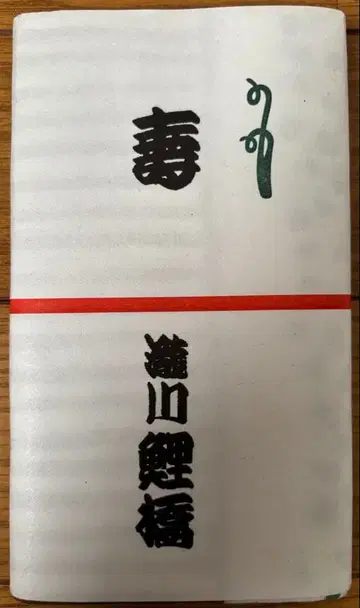 のし
寿
瀧川鯉橋